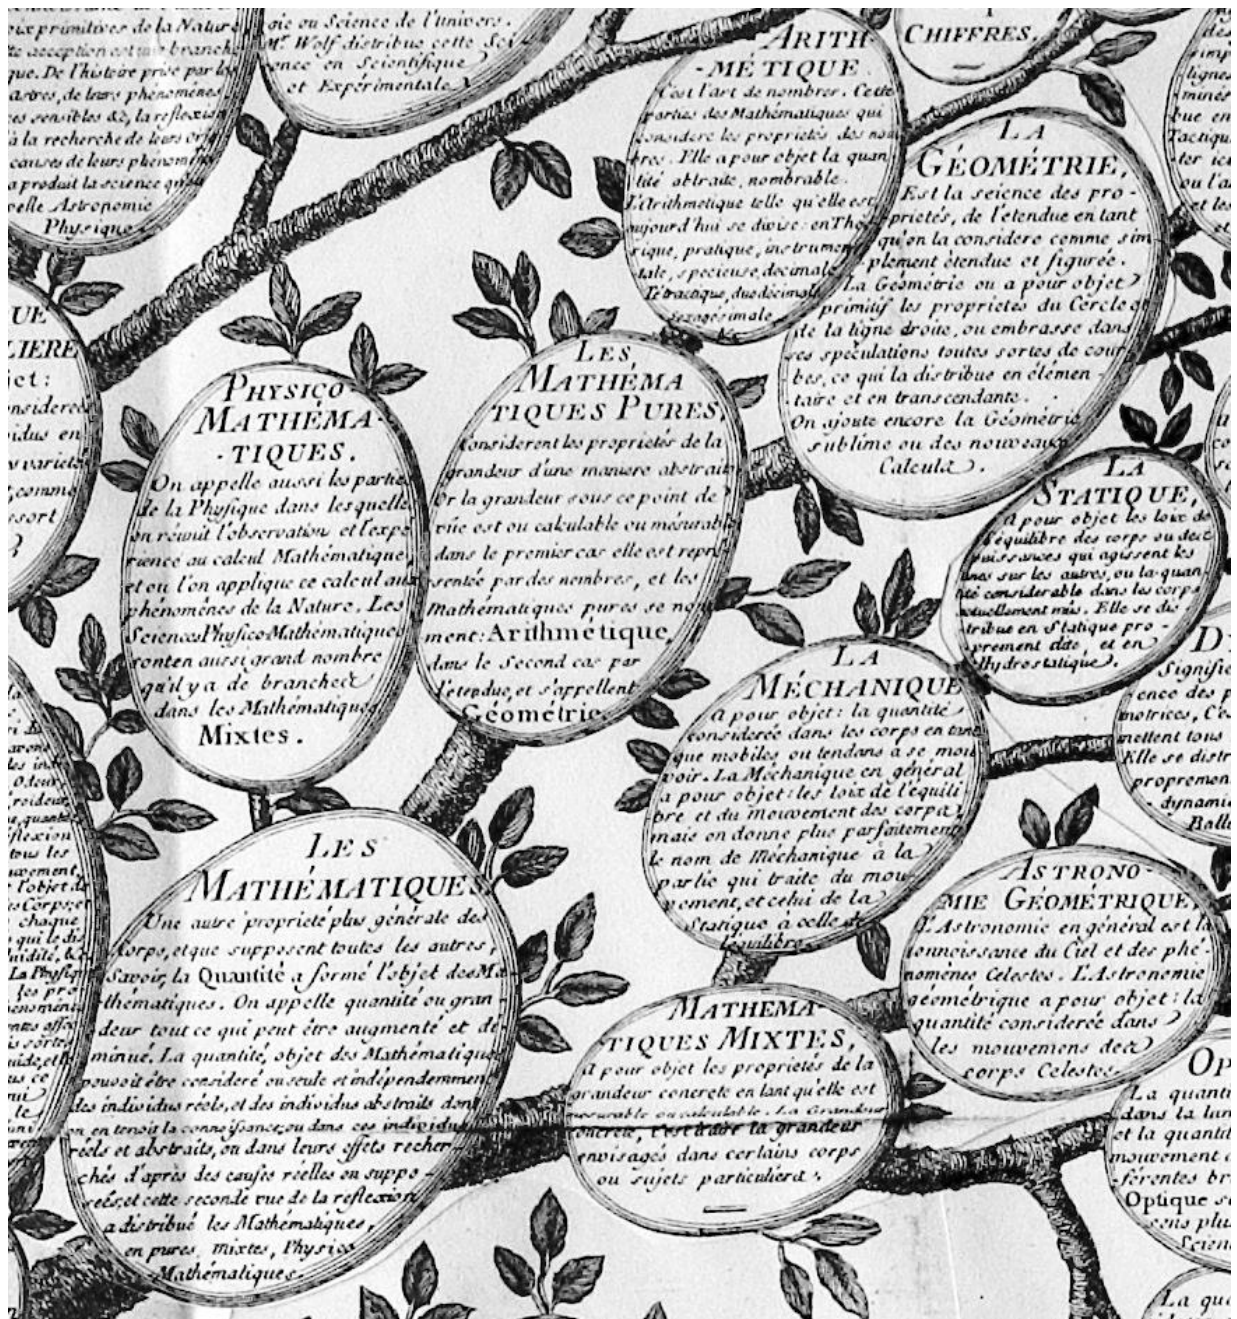 ix primitives de la Nature
te acception est une branch
que. De l'histoire prise par les
astres, de leurs phénomenes
es sensibles &c, la reflexion
à la recherche de leurs
causes de leurs phenomen
a produit la science
celle Astronomie
Physique.
gie ou Science de l'univers.
Mr. Wolf distribue cette Sci
ence en Scientifique
et Expérimentale
CHIFFRES.
ARITH
-MÉTIQUE
C'est l'art de nombrer. Cette
parties des Mathématiques qui
considere les proprietés des nom
bres. Elle a pour objet la quan
tité abtraite, nombrable.
L'Arithmetique telle qu'elle est
aujourd'hui se divise: en Théo
rique, pratique, instrumen
tale, specieuse, decimale
Tétractique, duodécimale
Sexagesimale
LA
GÉOMÉTRIE,
Est la seience des pro-
prietés, de l'etendue en tant
qu'on la considere comme sim
plement étendue et figurée.
La Géométrie ou a pour objet
primitif les proprietés du Cercle et
de la ligne droite, ou embrasse dans
ses spéculations toutes sortes de cour
bes, ce qui la distribue en élémen-
taire et en transcendante.
On ajoute encore la Géométrie
sublime ou des nouveaux
Calculs.
PHYSICO
MATHÉMA-
-TIQUES.
On appelle aussi les partie
de la Physique dans lesquelle
on réunit l'observation et l'expé
rience au calcul Mathématique,
et ou l'on applique ce calcul aux
phénomènes de la Nature. Les
Sciences Physico Mathématiques
sont en aussi grand nombre
qu'il y a de branches
dans les Mathématiques
Mixtes.
LES
MATHÉMA
TIQUES PURES,
Considerent les proprietés de la
grandeur d'une maniere abstraite
Or la grandeur sous ce point de
vüe est ou calculable ou mésurable
dans le premier cas elle est repré
sentée par des nombres, et les
Mathématiques pures se nom
ment: Arithmétique,
dans le Second cas par
l'etendue, et s'appellent
Géométrie.
LA
STATIQUE,
A pour objet les loix de
l'équilibre des corps ou des
puissances qui agissent les
unes sur les autres, ou la quan
tité considerable dans les corps
actuellement mûs. Elle se dis
tribue en Statique pro-
prement dite, et en
Hydrostatique.
LA
MÉCHANIQUE
A pour objet: la quantité
considerée dans les corps en tant
que mobiles ou tendans à se mou
voir. La Méchanique en général
a pour objet: les loix de l'équili
bre et du mouvement des corps,
mais on donne plus parfaitement
le nom de Méchanique à la
partie qui traite du mou-
vement, et celui de la
Statique à celle de
l'équilibre.
ASTRONO-
MIE GÉOMÉTRIQUE,
L'Astronomie en général est la
connoissance du Ciel et des phé-
nomènes Celestes. L'Astronomie
géométrique a pour objet: la
quantité considerée dans
les mouvemens des
corps Celestes.
LES
MATHÉMATIQUES,
Une autre proprieté plus générale des
Corps, et que supposent toutes les autres,
Savoir, la Quantité a formé l'objet des Ma
thématiques. On appelle quantité ou gran
deur tout ce qui peut être augmenté et di
minué. La quantité, objet des Mathématiques
pouvoit être consideré ou seule et indépendemment
des individus réels, et des individus abstraits dont
on en tenoit la connoissance; ou dans ces individus
réels et abstraits, ou dans leurs effets recher-
chés d'après des causes réelles ou suppo-
sées; et cette seconde vue de la reflexion
a distribué les Mathématiques,
en pures, mixtes, Physico
Mathématiques.
MATHEMA
TIQUES MIXTES,
A pour objet les proprietés de la
grandeur concrete en tant qu'elle est
mesurable ou calculable. La Grandeur
concrete, c'est à dire la grandeur
envisagés dans certains corps
ou sujets particuliers.
LIERE
jet:
onsiderées
idus en
s varietés
comme
ssort
Signifie
ence des p
motrices, C'es
mettent tous
Elle se distr
propremen
dynamiq
Balli
OP
La quanti
dans la lum
et la quantit
mouvement d
férentes br
Optique s
sens plus
Scien
La qua